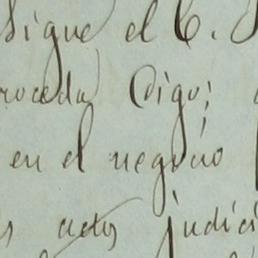 sigue el C.
roceda Digo;
en el negocio
s actos judici